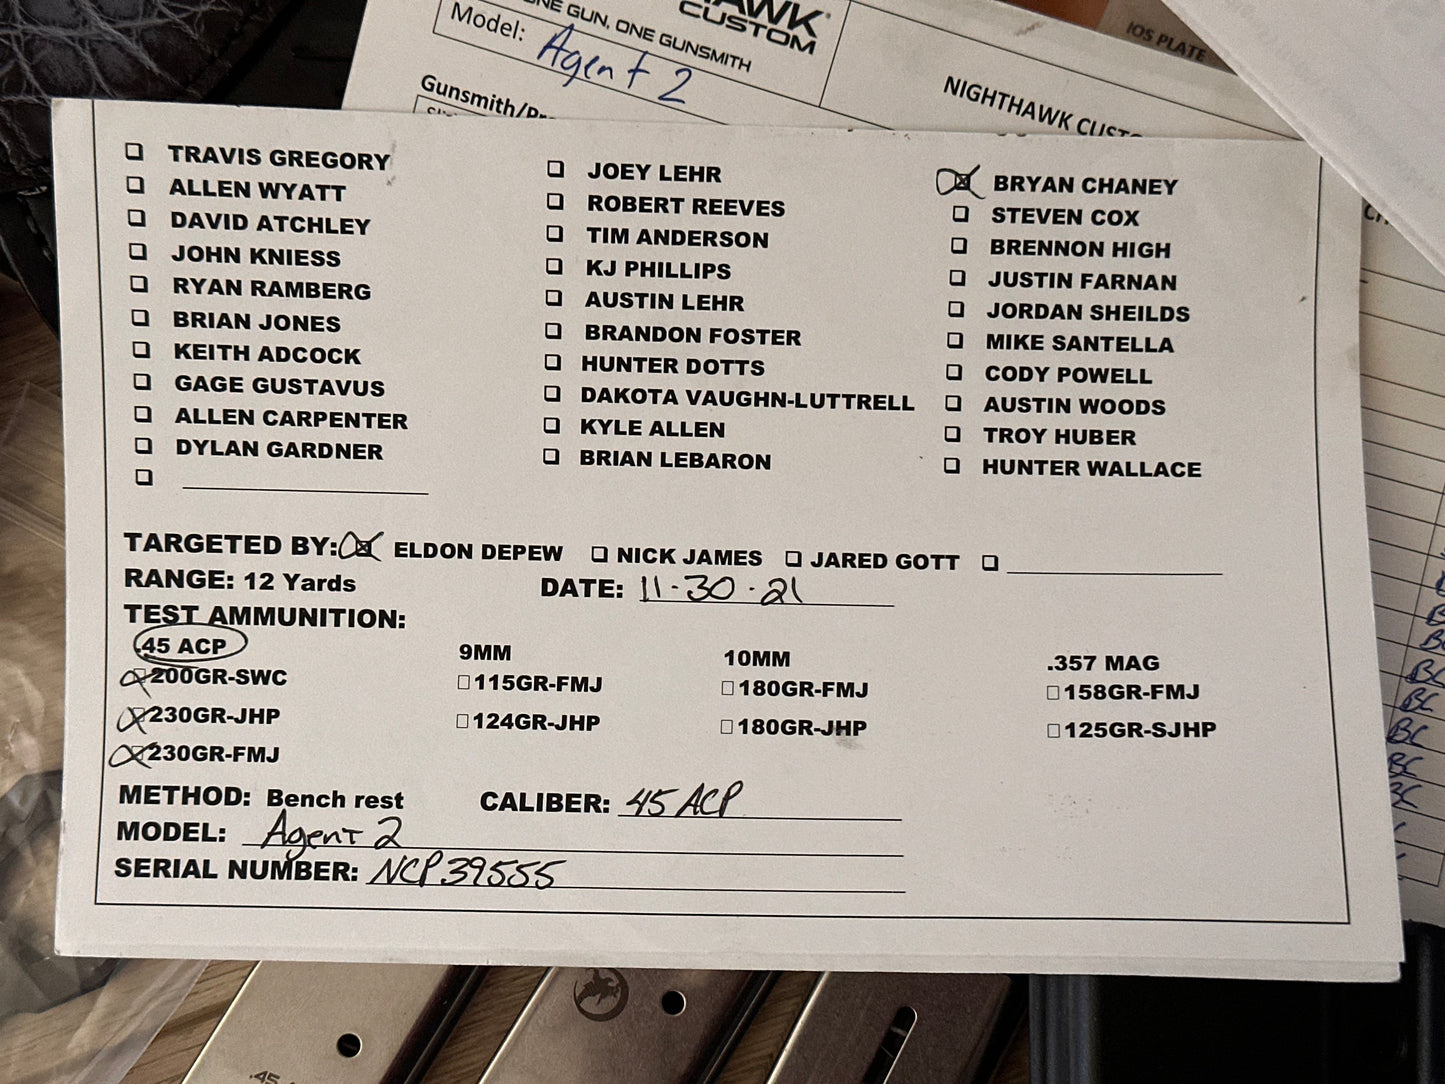 CUSTOM
ONE GUN, ONE GUNSMITH
Model: Agent 2
IOS PLATE
NIGHTHAWK
Gunsmith/
☐ TRAVIS GREGORY ☐ JOEY LEHR ☒ BRYAN CHANEY
☐ ALLEN WYATT ☐ ROBERT REEVES ☐ STEVEN COX
☐ DAVID ATCHLEY ☐ TIM ANDERSON ☐ BRENNON HIGH
☐ JOHN KNIESS ☐ KJ PHILLIPS ☐ JUSTIN FARNAN
☐ RYAN RAMBERG ☐ AUSTIN LEHR ☐ JORDAN SHEILDS
☐ BRIAN JONES ☐ BRANDON FOSTER ☐ MIKE SANTELLA
☐ KEITH ADCOCK ☐ HUNTER DOTTS ☐ CODY POWELL
☐ GAGE GUSTAVUS ☐ DAKOTA VAUGHN-LUTTRELL ☐ AUSTIN WOODS
☐ ALLEN CARPENTER ☐ KYLE ALLEN ☐ TROY HUBER
☐ DYLAN GARDNER ☐ BRIAN LEBARON ☐ HUNTER WALLACE
TARGETED BY: ☒ ELDON DEPEW ☐ NICK JAMES ☐ JARED GOTT ☐
RANGE: 12 Yards DATE: 11-30-21
TEST AMMUNITION:
.45 ACP 9MM 10MM .357 MAG
☒ 200GR-SWC ☐ 115GR-FMJ ☐ 180GR-FMJ ☐ 158GR-FMJ
☒ 230GR-JHP ☐ 124GR-JHP ☐ 180GR-JHP ☐ 125GR-SJHP
☒ 230GR-FMJ
METHOD: Bench rest CALIBER: 45 ACP
MODEL: Agent 2
SERIAL NUMBER: NCP39555
BC
BC
BC
BC
BC
BC
.45